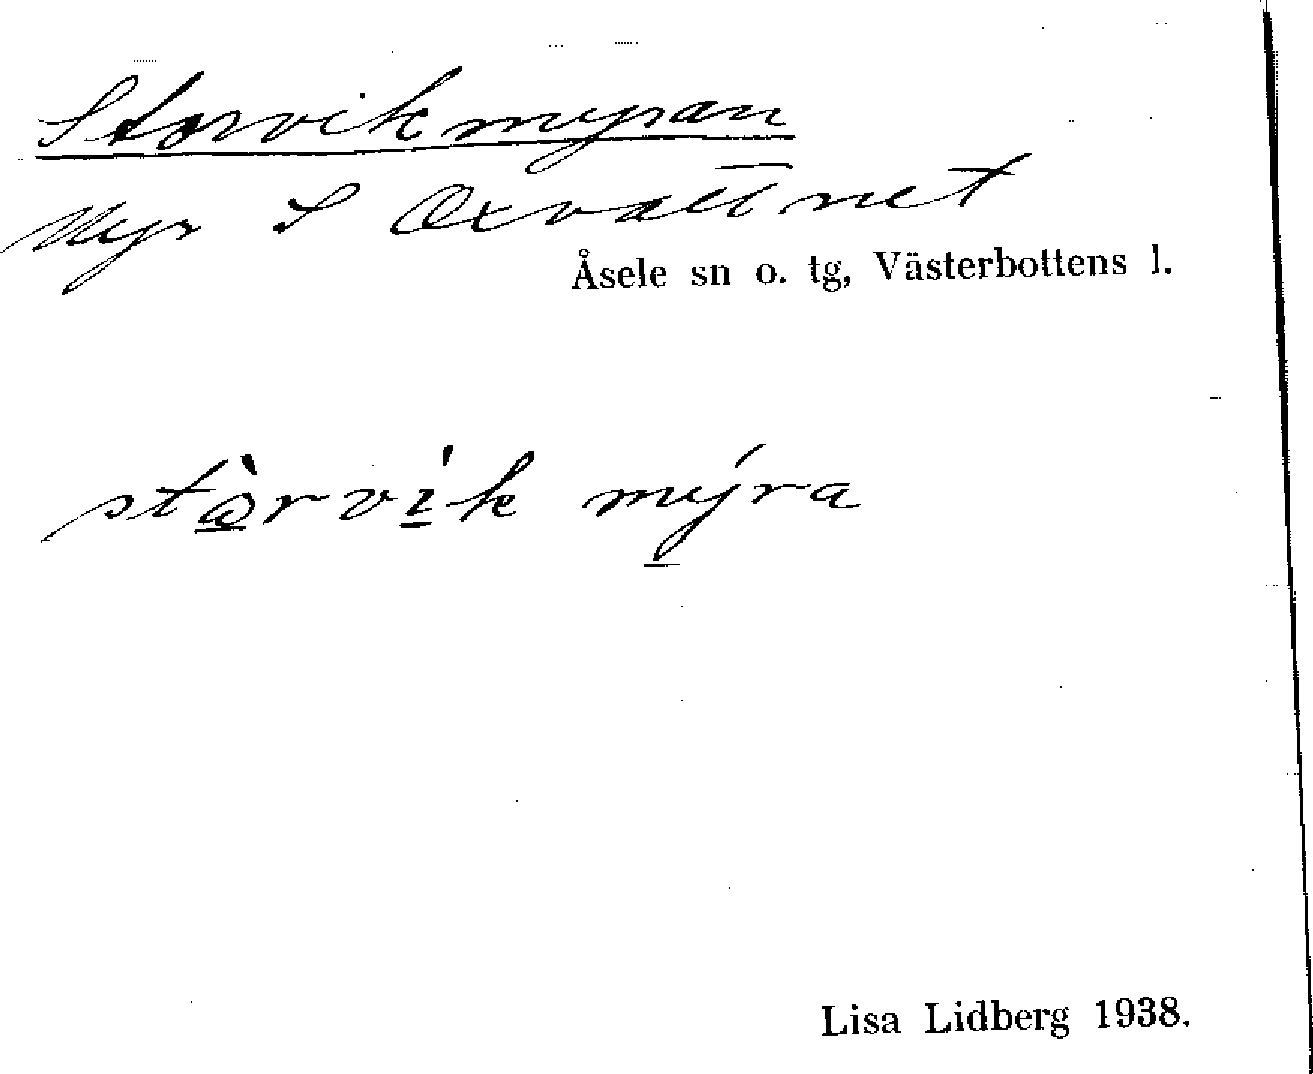 Storvikmyran
Myr S Oxvattnet
Åsele sn o. tg, Västerbottens l.
stò̱rví̱k mý̱ra
Lisa Lidberg 1938.